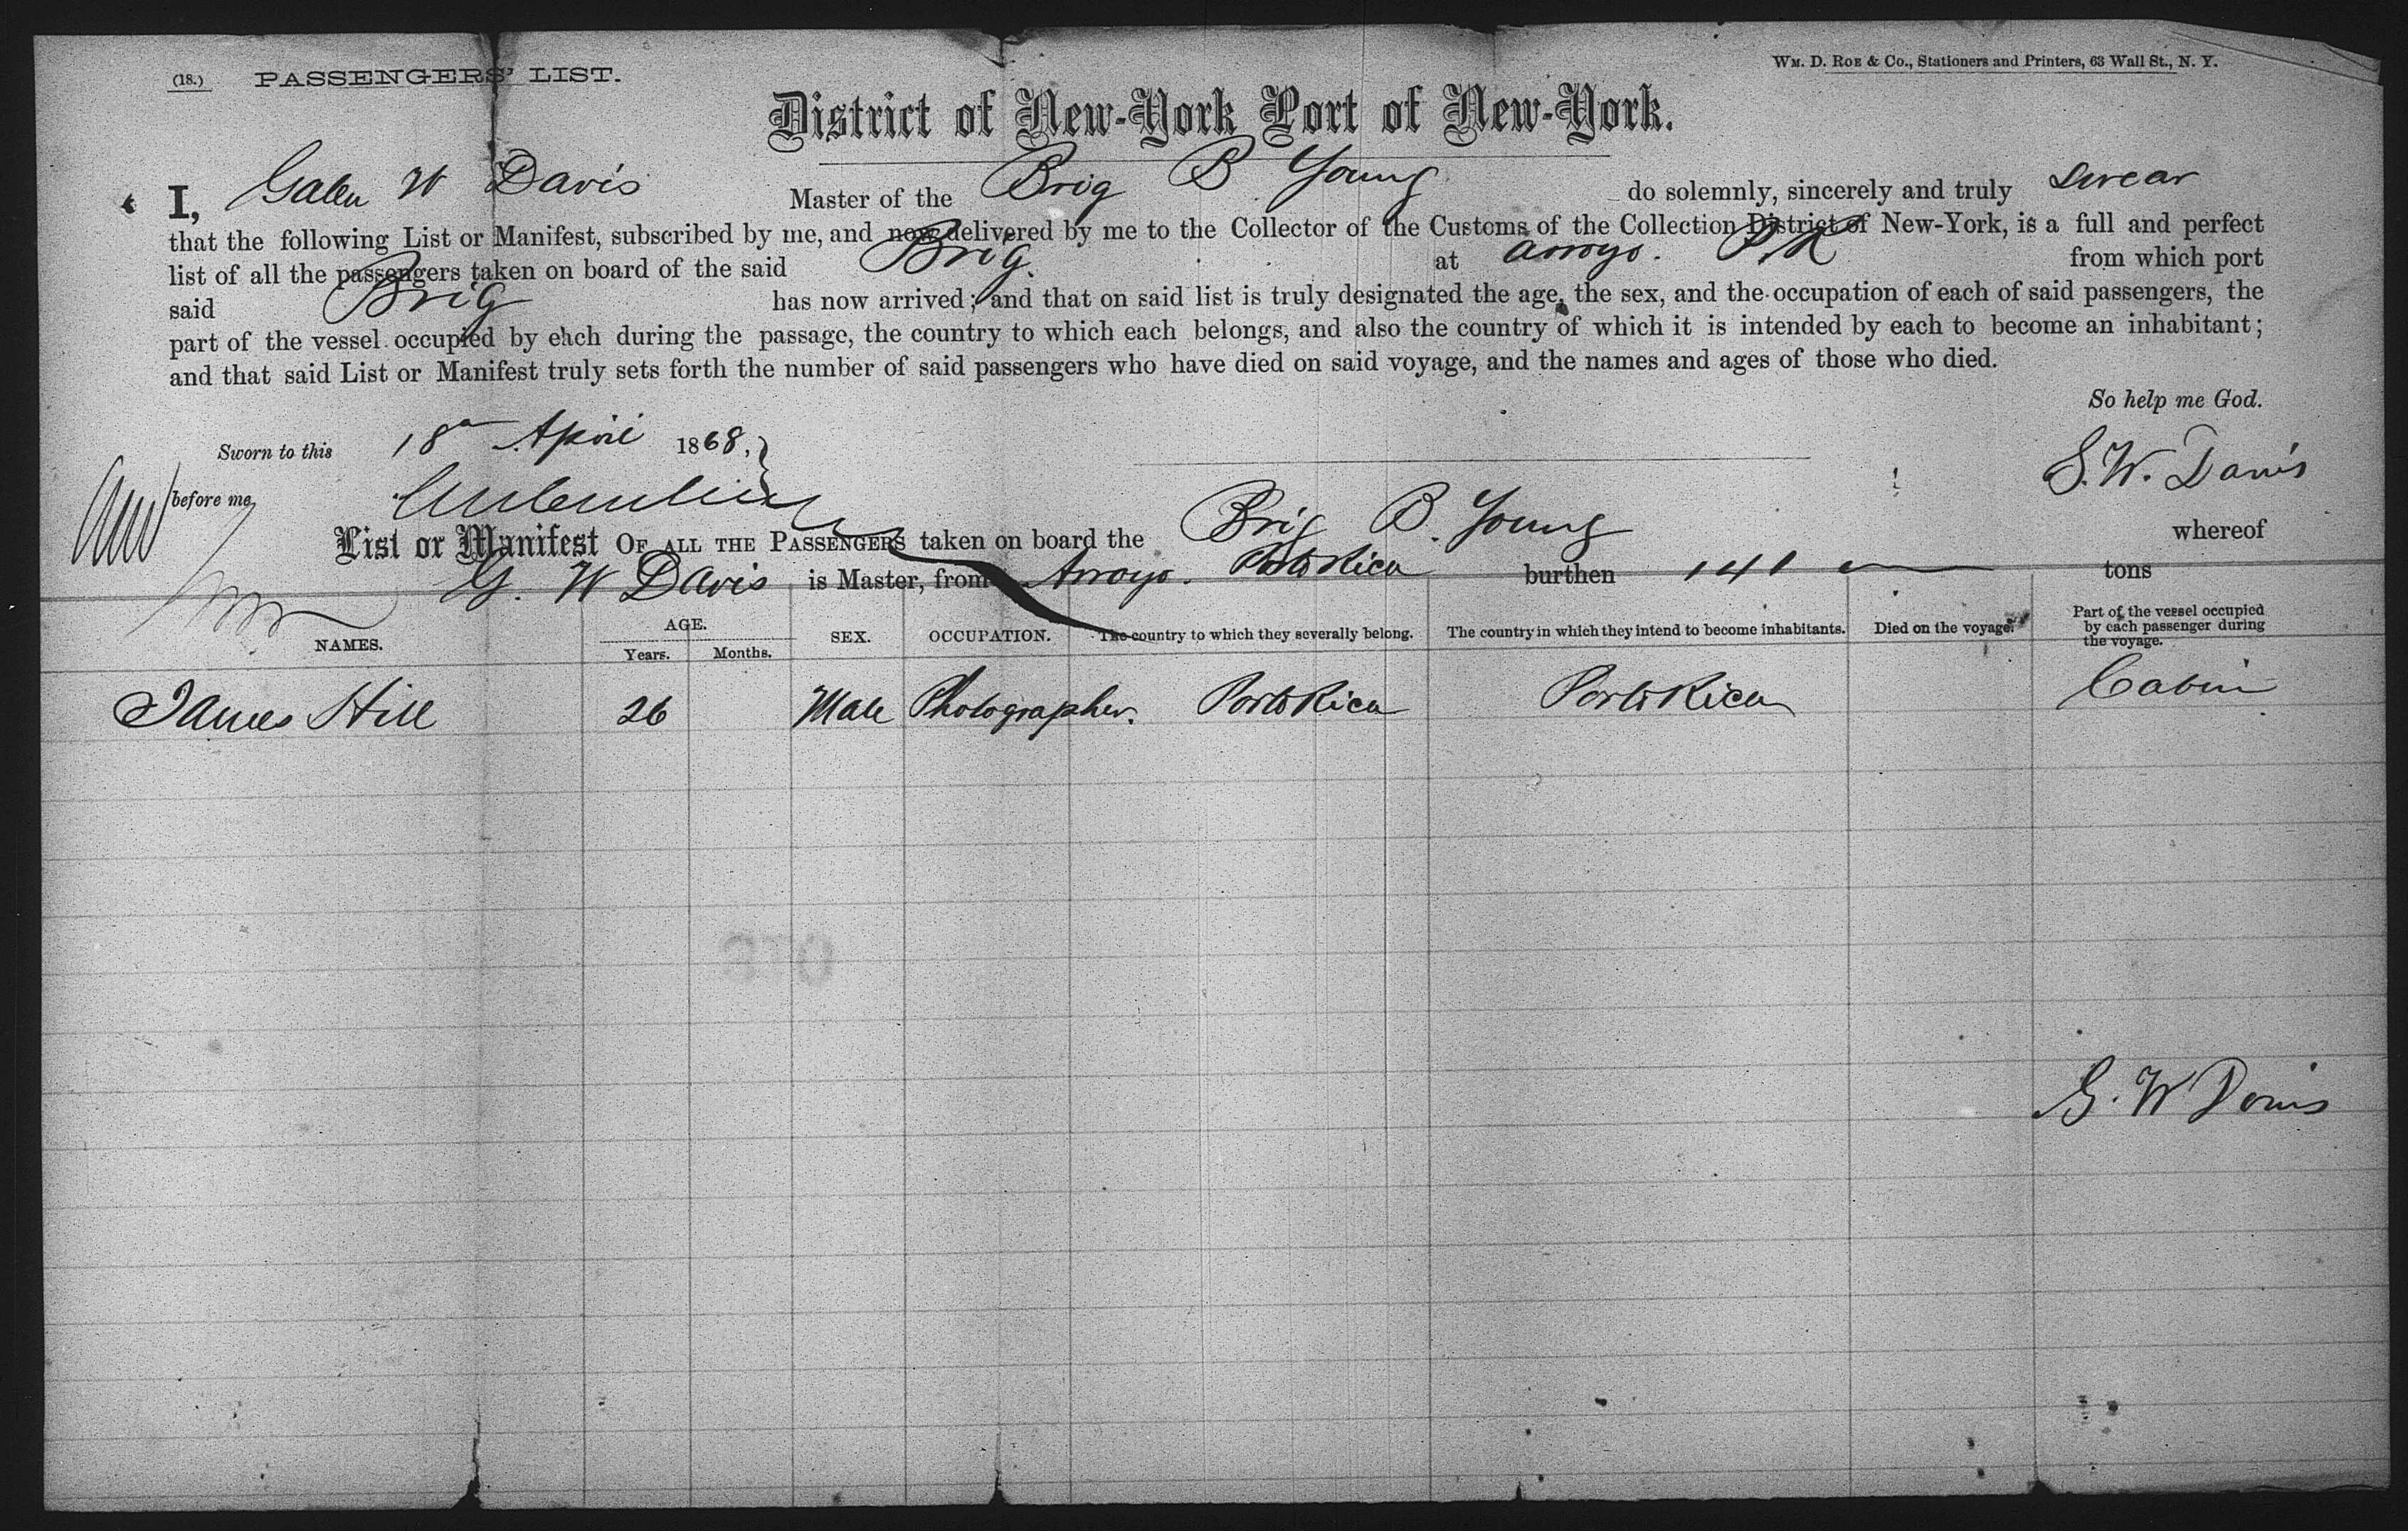 (18.) PASSENGERS' LIST.
Wm. D. Roe & Co., Stationers and Printers, 63 Wall St., N. Y.
District of New-York Port of New-York.
I, Galen W Davis Master of the Brig B Young do solemnly, sincerely and truly swear
that the following List or Manifest, subscribed by me, and now delivered by me to the Collector of the Customs of the Collection District of New-York, is a full and perfect
list of all the passengers taken on board of the said Brig. at Arroyo. P.R from which port
said Brig has now arrived; and that on said list is truly designated the age, the sex, and the occupation of each of said passengers, the
part of the vessel occupied by each during the passage, the country to which each belongs, and also the country of which it is intended by each to become an inhabitant;
and that said List or Manifest truly sets forth the number of said passengers who have died on said voyage, and the names and ages of those who died.
So help me God.
Sworn to this 18 April 1868,
G. W. Davis
before me,
List or Manifest OF ALL THE PASSENGERS taken on board the Brig B. Young whereof
G. W Davis is Master, from Arroyo. Porto Rico burthen 141 tons
NAMES. AGE. Years. Months. SEX. OCCUPATION. The country to which they severally belong. The country in which they intend to become inhabitants. Died on the voyage. Part of the vessel occupied by each passenger during the voyage.
James Hill 26 Male Photographer. Porto Rico Porto Rico Cabin
G. W Davis